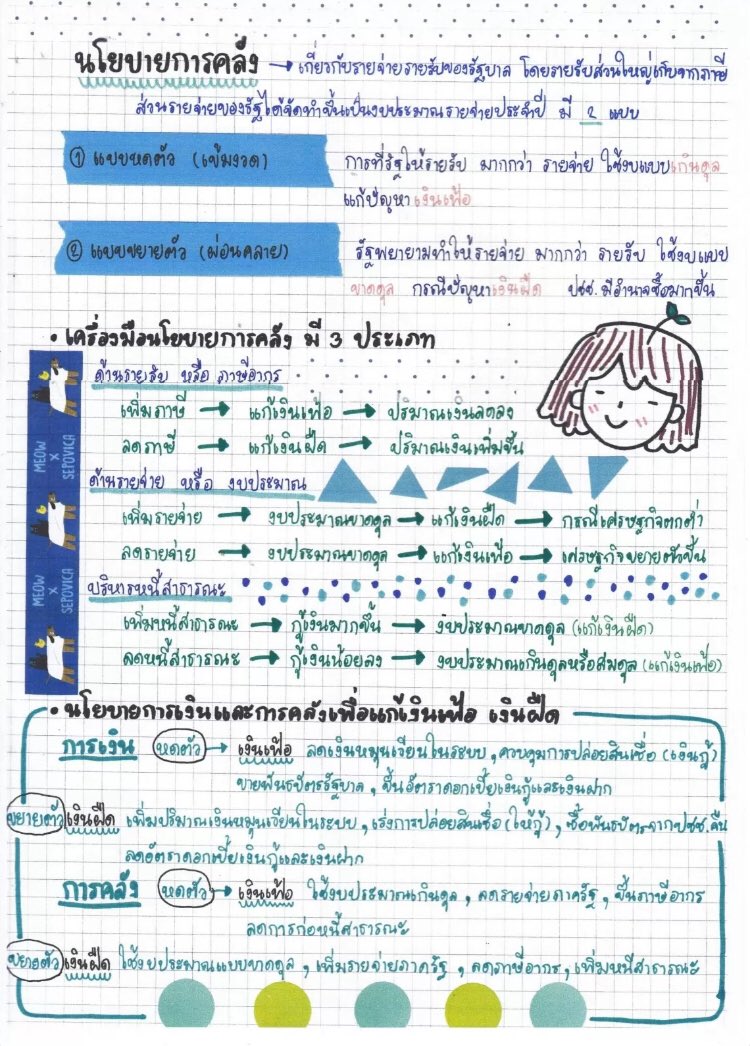 นโยบายการคลัง → เกี่ยวกับรายจ่ายรายรับของรัฐบาล โดยรายรับส่วนใหญ่เก็บจากภาษี
ส่วนรายจ่ายของรัฐได้จัดทำขึ้นเป็นงบประมาณรายจ่ายประจำปี มี 2 แบบ
① แบบหดตัว (เข้มงวด) การที่รัฐให้รายรับ มากกว่า รายจ่าย ใช้งบแบบเกินดุล
แก้ปัญหาเงินเฟ้อ
② แบบขยายตัว (ผ่อนคลาย) รัฐพยายามทำให้รายจ่าย มากกว่า รายรับ ใช้งบแบบ
ขาดดุล กรณีปัญหาเงินฝืด ปชช. มีอำนาจซื้อมากขึ้น
• เครื่องมือนโยบายการคลัง มี 3 ประเภท
ด้านรายรับ หรือ ภาษีอากร
เพิ่มภาษี → แก้เงินเฟ้อ → ปริมาณเงินลดลง
ลดภาษี → แก้เงินฝืด → ปริมาณเงินเพิ่มขึ้น
MEOW X SEPOVICA
ด้านรายจ่าย หรือ งบประมาณ
เพิ่มรายจ่าย → งบประมาณขาดดุล → แก้เงินฝืด → กรณีเศรษฐกิจตกต่ำ
ลดรายจ่าย → งบประมาณขาดดุล → แก้เงินเฟ้อ → เศรษฐกิจขยายตัวขึ้น
MEOW X SEPOVICA
บริหารหนี้สาธารณะ
เพิ่มหนี้สาธารณะ → กู้เงินมากขึ้น → งบประมาณขาดดุล (แก้เงินฝืด)
ลดหนี้สาธารณะ → กู้เงินน้อยลง → งบประมาณเกินดุลหรือสมดุล (แก้เงินเฟ้อ)
• นโยบายการเงินและการคลังเพื่อแก้เงินเฟ้อ เงินฝืด
การเงิน หดตัว → เงินเฟ้อ ลดเงินหมุนเวียนในระบบ, ควบคุมการปล่อยสินเชื่อ (เงินกู้)
ขายพันธบัตรรัฐบาล, ขึ้นอัตราดอกเบี้ยเงินกู้และเงินฝาก
ขยายตัว เงินฝืด เพิ่มปริมาณเงินหมุนเวียนในระบบ, เร่งการปล่อยสินเชื่อ (ให้กู้), ซื้อพันธบัตรจากปชช. คืน
ลดอัตราดอกเบี้ยเงินกู้และเงินฝาก
การคลัง หดตัว → เงินเฟ้อ ใช้งบประมาณเกินดุล, ลดรายจ่ายภาครัฐ, ขึ้นภาษีอากร
ลดการก่อหนี้สาธารณะ
ขยายตัว เงินฝืด ใช้งบประมาณแบบขาดดุล, เพิ่มรายจ่ายภาครัฐ, ลดภาษีอากร, เพิ่มหนี้สาธารณะ